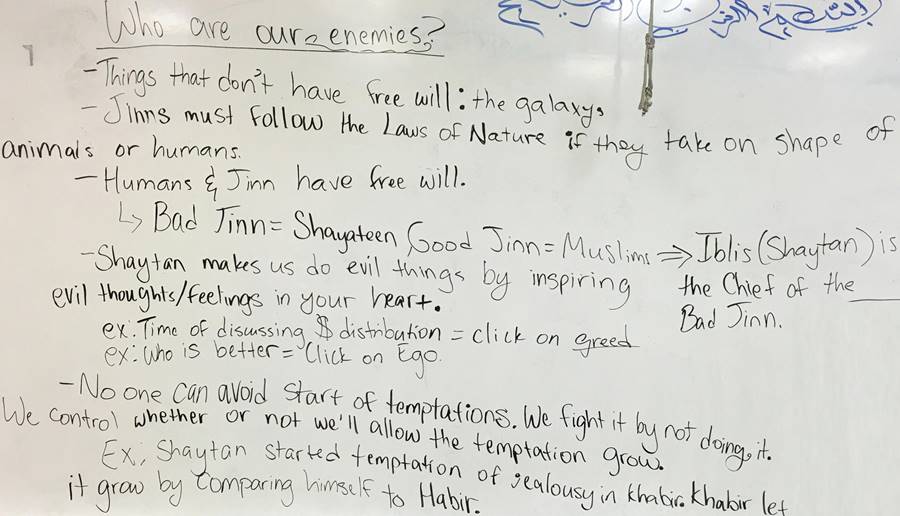 بسم الله الرحمن الرحيم
Who are our enemies?
1
- Things that don't have free will: the galaxy.
- Jinns must follow the Laws of Nature if they take on shape of
animals or humans.
- Humans & Jinn have free will.
↳ Bad Jinn = Shayateen Good Jinn = Muslims ⇒ Iblis (Shaytan) is
the Chief of the
Bad Jinn.
- Shaytan makes us do evil things by inspiring
evil thoughts/feelings in your heart.
ex: Time of discussing $ distribution = click on greed
ex: Who is better = Click on Ego.
- No one can avoid start of temptations. We fight it by not doing it.
We control whether or not we'll allow the temptation grow.
Ex: Shaytan started temptation of jealousy in Khabir. Khabir let
it grow by comparing himself to Habir.